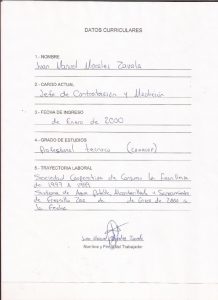 DATOS CURRICULARES
1.- NOMBRE
Juan Manuel Morales Zavala
2.- CARGO ACTUAL
Jefe de Contratacion y Medicion
3.- FECHA DE INGRESO
de Enero de 2000
4.- GRADO DE ESTUDIOS
Profesional tecnico (conalep)
5.- TRAYECTORIA LABORAL
Sociedad Cooperativa de Consumo la Fresnillense
de 1997 A 1999
Sistema de Agua Potable, Alcantarillado y Saneamiento
de Fresnillo Zac. de de Enero de 2000 a
la fecha
Juan Manuel Morales Zavala
Nombre y Firma del Trabajador